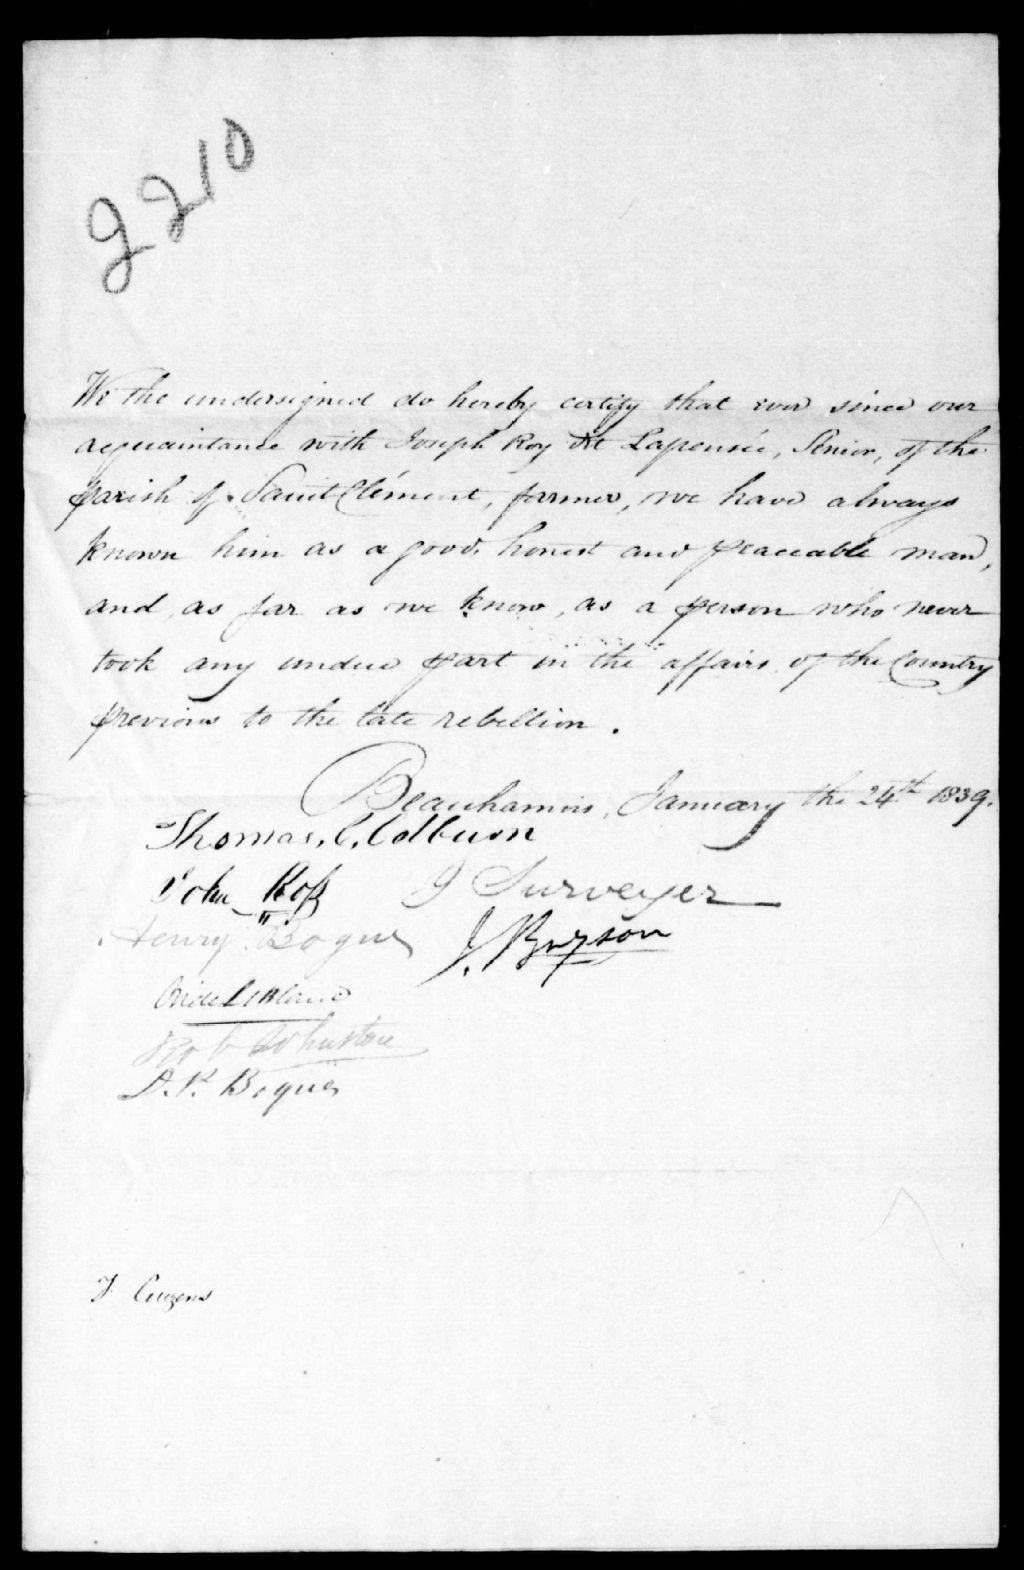 2210
We the undersigned do hereby certify that ever since our
acquaintance with Joseph Roy dit Lapensée, Senior, of the
parish of Saint Clément, farmer, we have always
known him as a good, honest and peaceable man,
and as far as we know, as a person who never
took any undue part in the affairs of the Country
previous to the late rebellion.
Beauharnois, January the 24th 1839.
Thomas. C. Colburn
John Ross J Surveyer
Henry Bogue J. Bryson
LeBlanc
Rob Johnston
D. Bogue